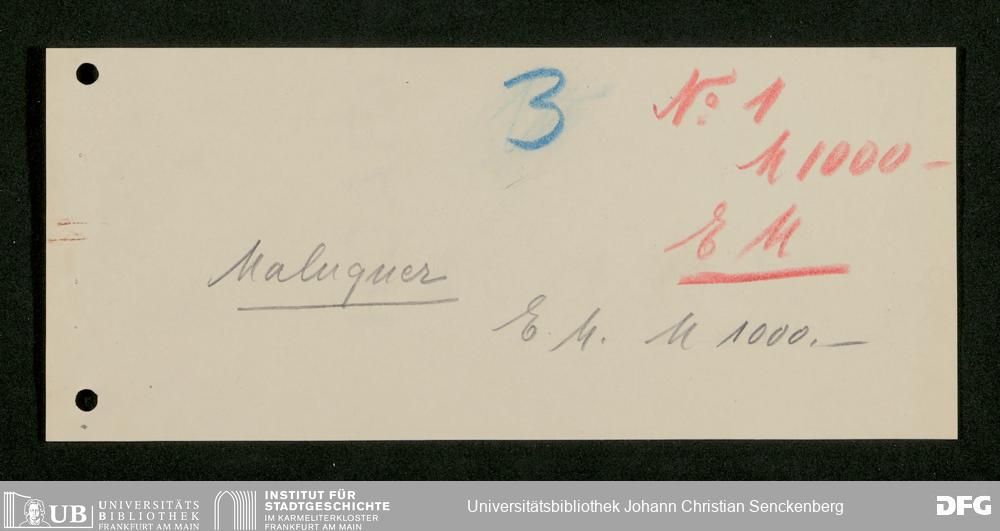 B
No. 1
M 1000 –
E M
Maluquer
E. M. M 1000.–
UB UNIVERSITÄTS
BIBLIOTHEK
FRANKFURT AM MAIN
INSTITUT FÜR
STADTGESCHICHTE
IM KARMELITERKLOSTER
FRANKFURT AM MAIN
Universitätsbibliothek Johann Christian Senckenberg
DFG